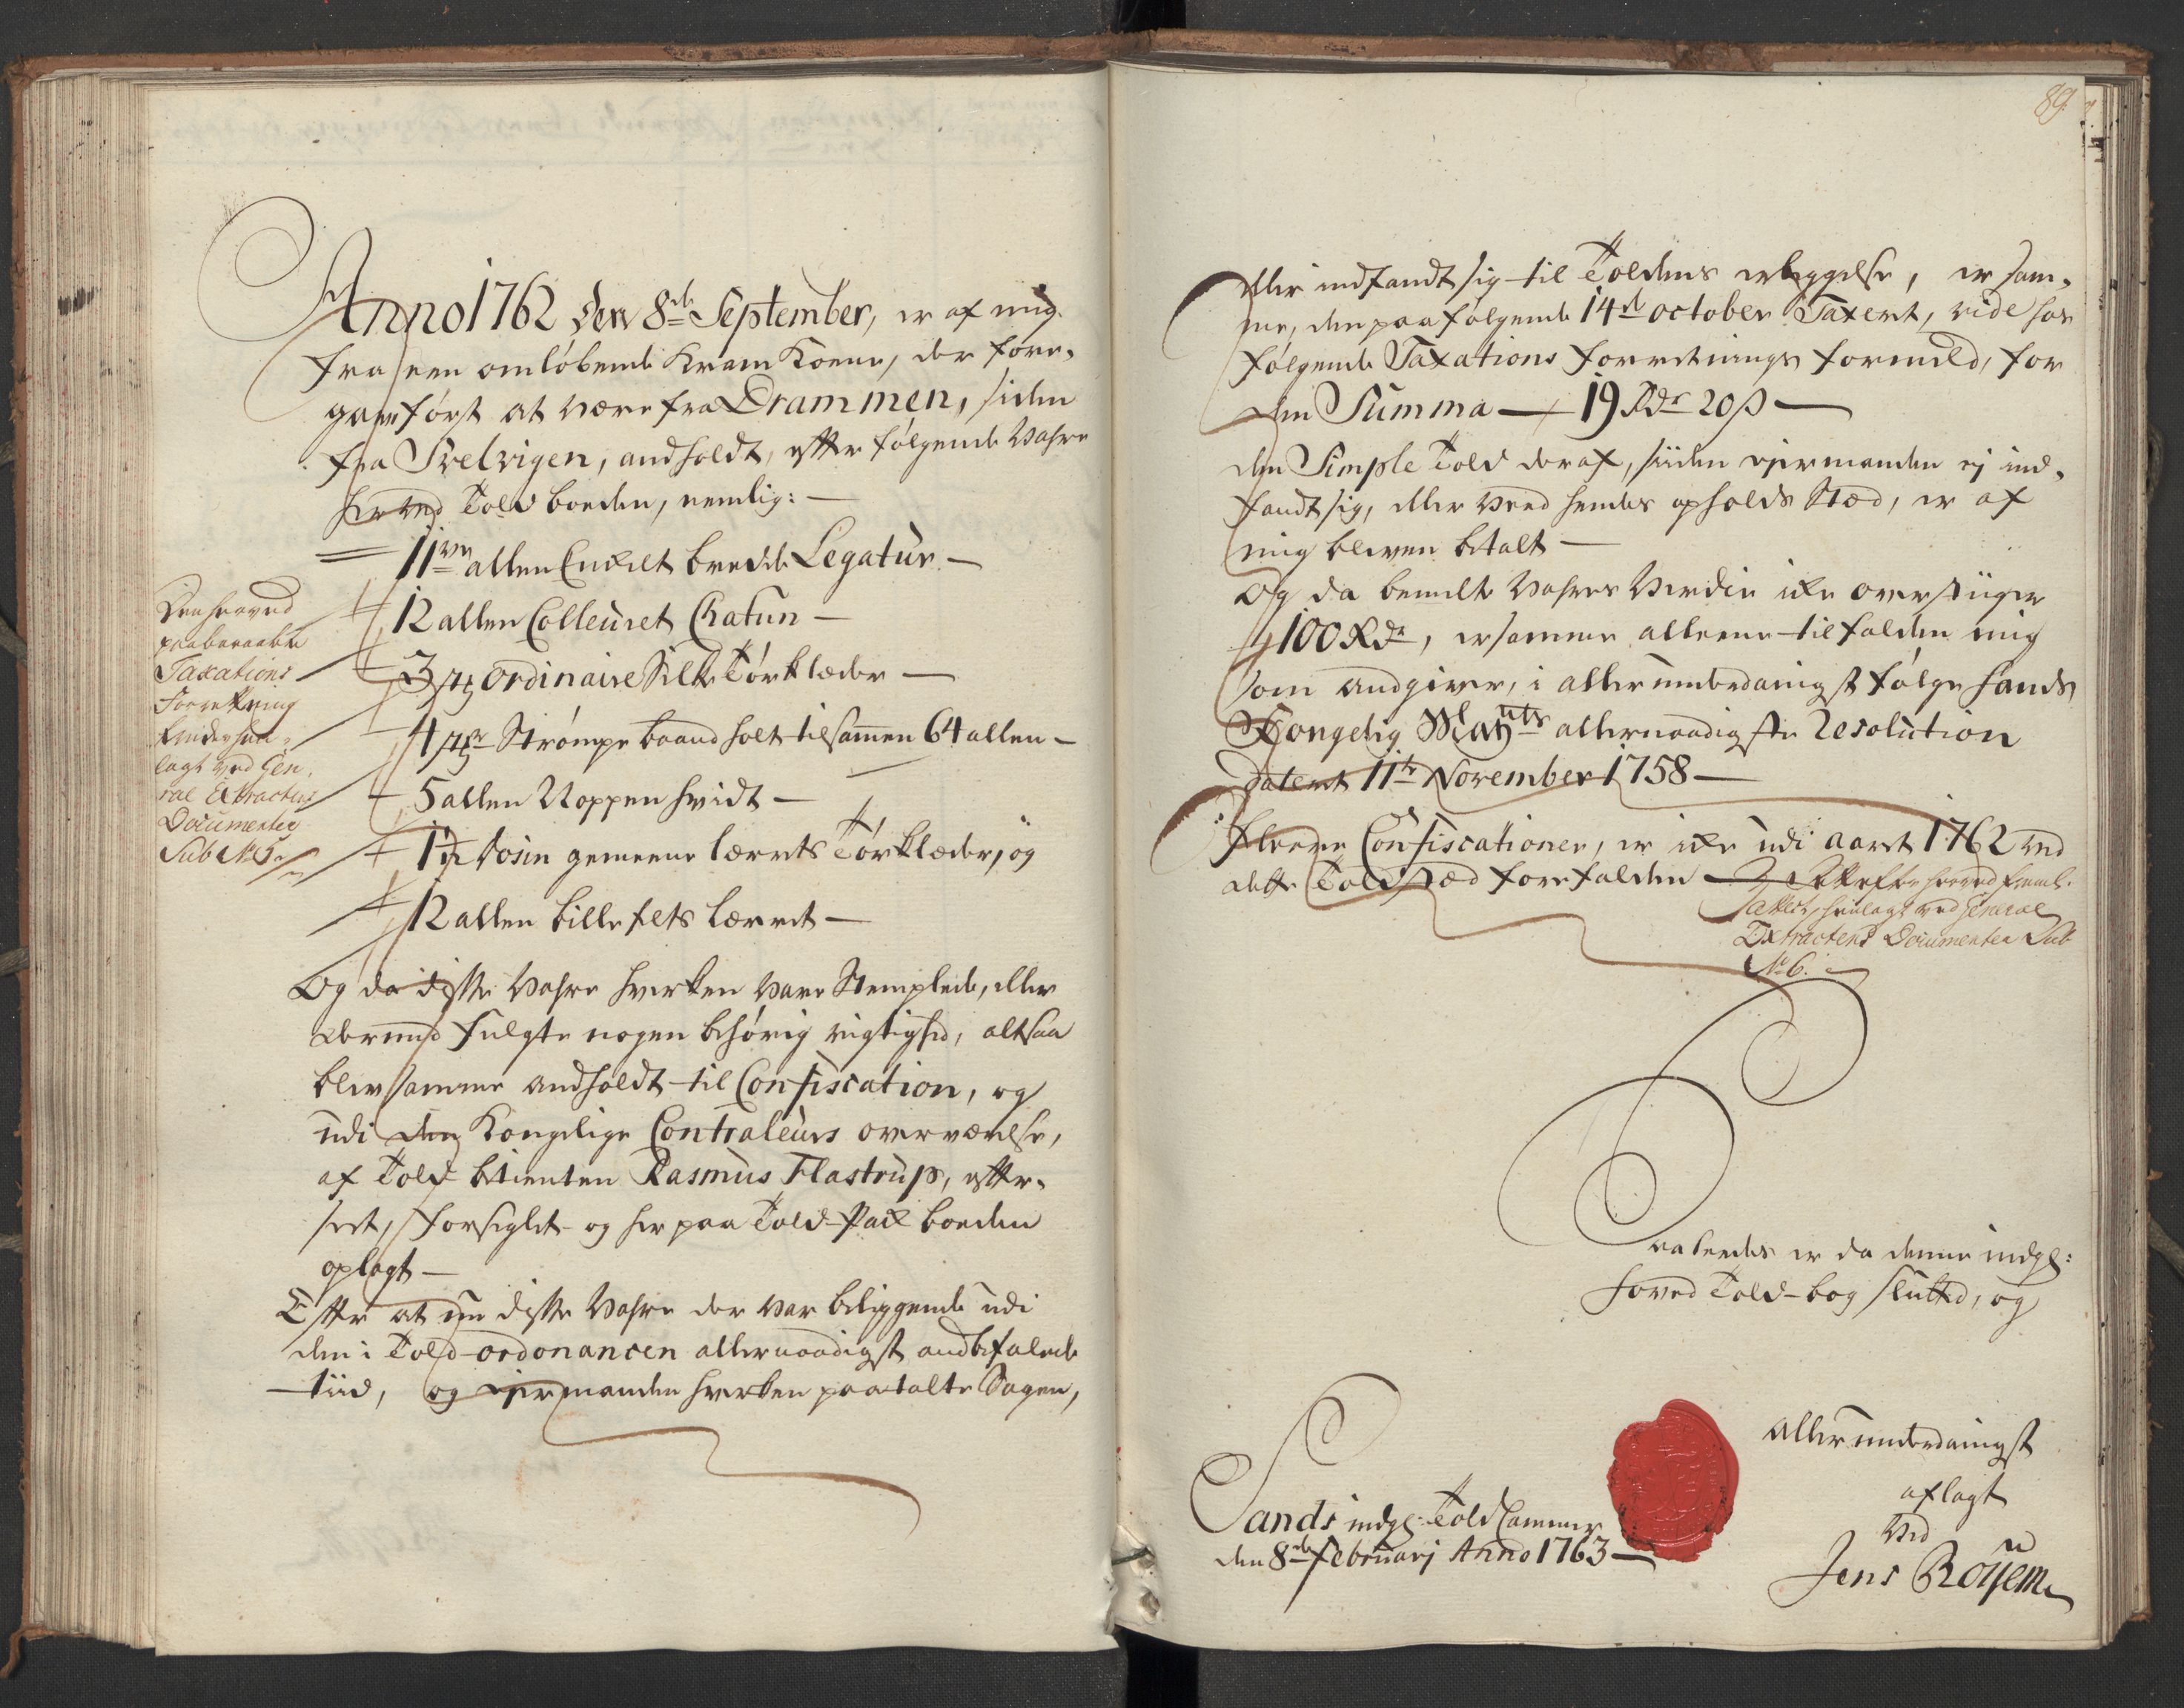 Anno 1762 den 8de September, er af mig
fra een omløbende Kram Kone, der fore,
gav først at være fra Drammen, siden
fra Svelvigen, andholdt, efter følgende Vahre
her ved Told boeden, nemlig: —
11 allen Enkelt bredde Legatùr —
12 allen Colleùret Chatun —
3 ordinaire Silke Tørklæder —
4 Strømpe baand holt tilsamen 64 allen —
5 allen Noppen hvidt —
1 dosin gemeene lærrets Tørklæder, og
12 allen billefelts lærret —
Den herved
paaberaabte
Taxations
Forretning
findes hen,
lagt ved Gen,
ral Extractens
Documenter
Sub No 5.
Og da disse Vahre hverken vare Stemplede, eller
dermed fulgte nogen behørig rigtighed, altsaa
blev samme andholdt til Confiscation, og
udi den Kongelige Contraleurs overværelse,
af Told betienten Rasmus Flastrup, efter,
seet, forseglet og her paa Told Pak boeden
oplagt —
Efter at nu disse Vahre der var beliggende udi
den i Told-ordonancen allernaadigst andbefalede
tiid, og eyermanden hverken paatalte Sagen,
89.
eller indfandt sig til Toldens erleggelse, er sam,
me, den paafølgende 14de october Taxert, vide hos
følgende Taxations Forretnings formeld, for
den Summa — 19 Rdr 20 s —
den Simple Told deraf, siden eyermanden ej ind,
fandt sig, eller veed hendes opholds Stæd, er af
mig bleven betalt —
Og da bemelte Vahres Verdie ike overstiiger
100 Rdr, er samme alleene tilfalden mig
som andgiver, i allerunderdanigst følge hands
Kongelig Mayts allernaadigste Resolution
datert 11te November 1758 —
fleere Confiscationer, er ike udi aaret 1762 ved
dette Told stæd forefalden —
Atteste herved
henlagt ved General
Extractens Documenter Sub
No 6.
Saaleedes er da denne indg:
hoved Told-bog sluttet, og
Allerunderdanigst
aflagt
Ved
Jens Röyem
Sands indg: Told Cammer
den 8de Februarj Anno 1763 —